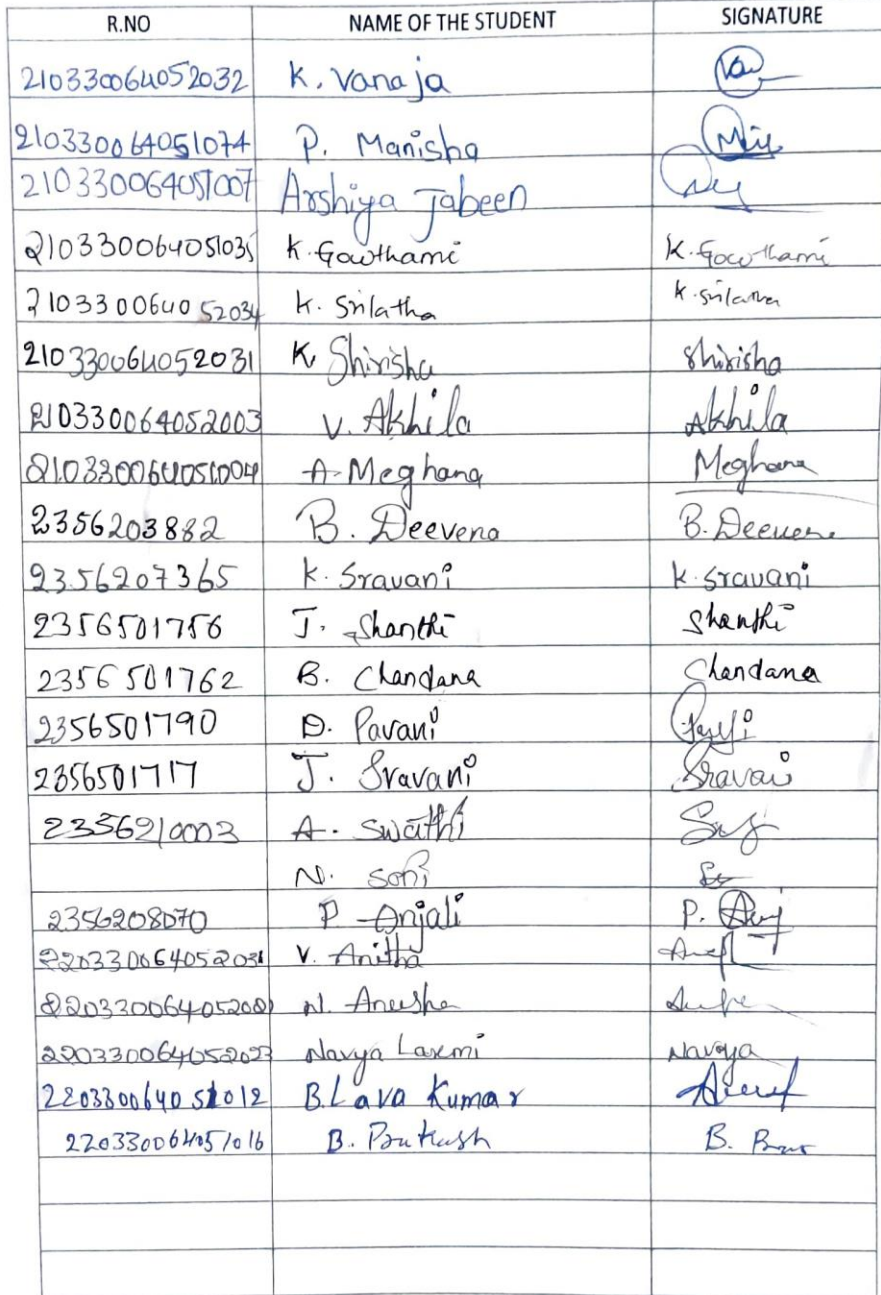 R.NO NAME OF THE STUDENT SIGNATURE
210330064052032 K. Vanaja
210330064051074 P. Manisha
210330064051007 Arshiya Jabeen
210330064051035 K. Gowthami K. Gowthami
210330064052034 K. Srilatha K. Srilatha
210330064052031 K Shirisha Shirisha
210330064052003 V. Akhila Akhila
210330064051004 A. Meghana Meghana
2356203882 B. Deevena B. Deevena
2356207365 K. Sravani K. Sravani
2356501756 J. Shanthi Shanthi
2356501762 B. Chandana Chandana
2356501790 D. Pavani
2356501717 J. Sravani Sravani
2356210003 A. Swathi
N. Soni
2356208070 P. Anjali P.
220330064052031 V. Anitha
N. Aneesha
220330064052023 Navya Laxmi Navya
220330064051012 B. Lava Kumar
220330064051016 B. Prakash B.